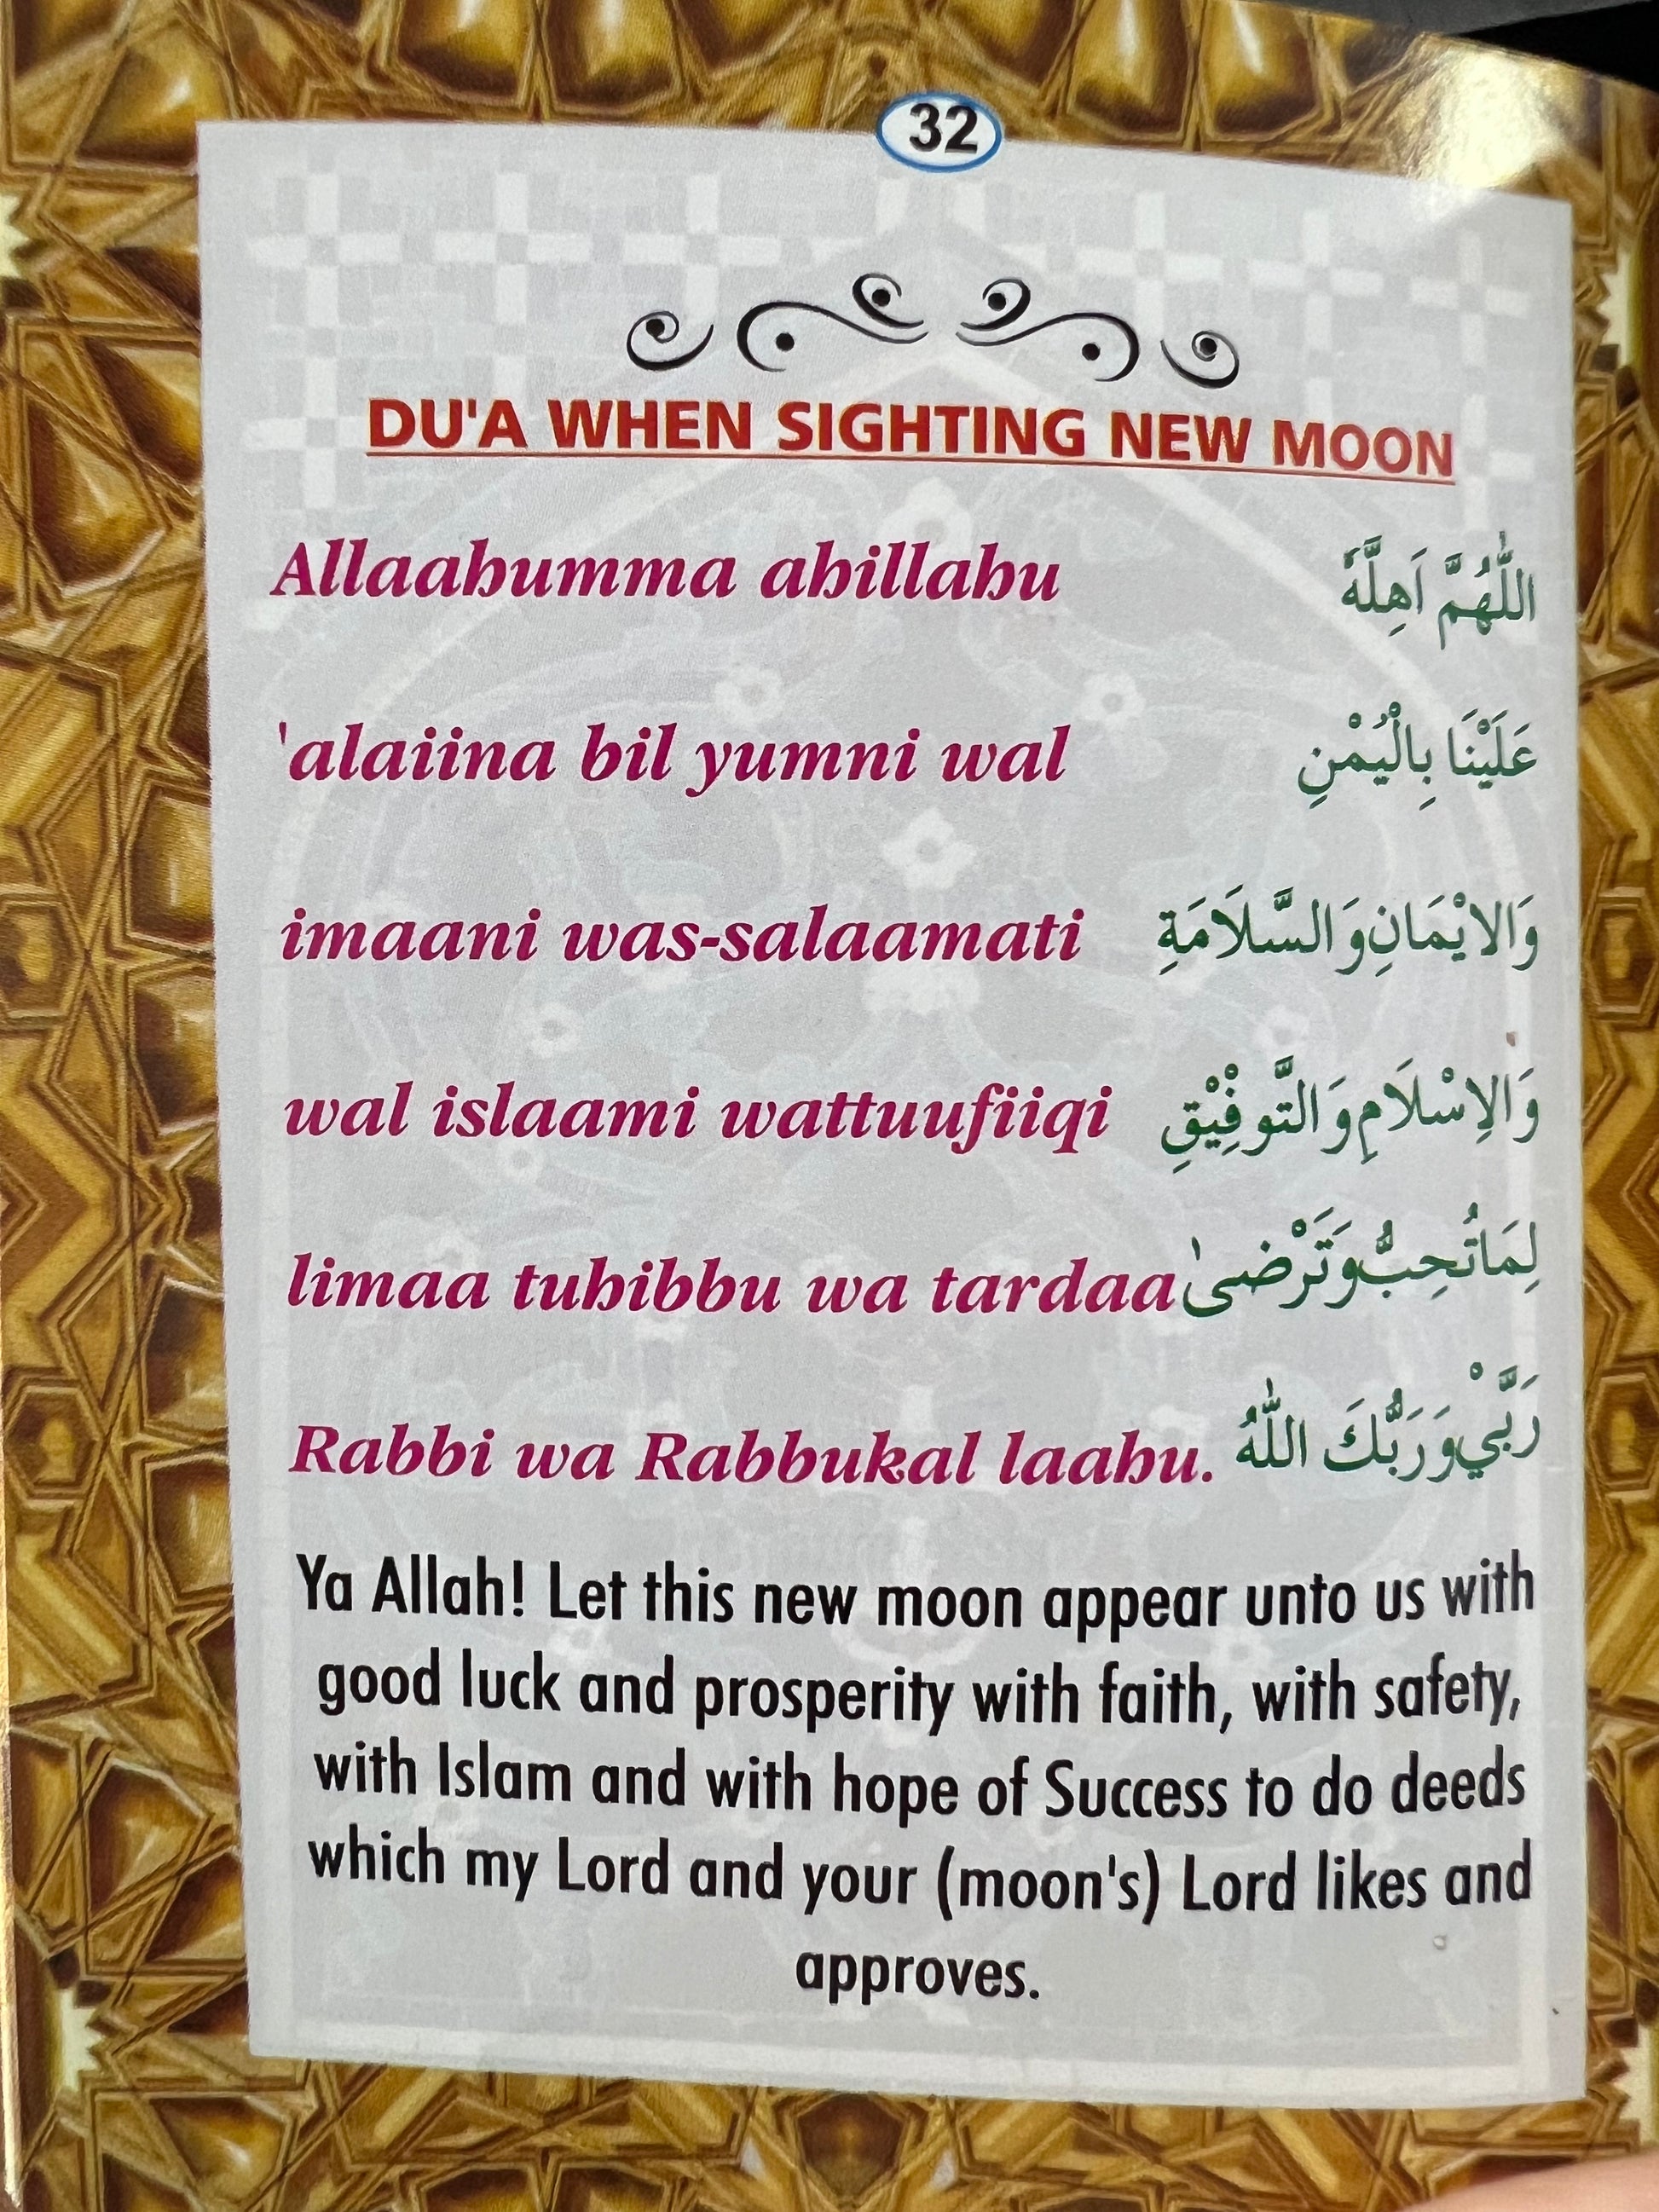 32
DU'A WHEN SIGHTING NEW MOON
Allaahumma ahillahu اللّٰهُمَّ اَهِلَّهٗ
'alaiina bil yumni wal عَلَيْنَا بِالْيُمْنِ
imaani was-salaamati وَالايْمَانِ وَالسَّلَامَةِ
wal islaami wattuufiiqi وَالاِسْلَامِ وَالتَّوفِيْقِ
limaa tuhibbu wa tardaa لِمَاتُحِبُّ وَتَرْضىٰ
Rabbi wa Rabbukal laahu. رَبَّيْ وَرَبُّكَ اللّٰهُ
Ya Allah! Let this new moon appear unto us with
good luck and prosperity with faith, with safety,
with Islam and with hope of Success to do deeds
which my Lord and your (moon's) Lord likes and
approves.